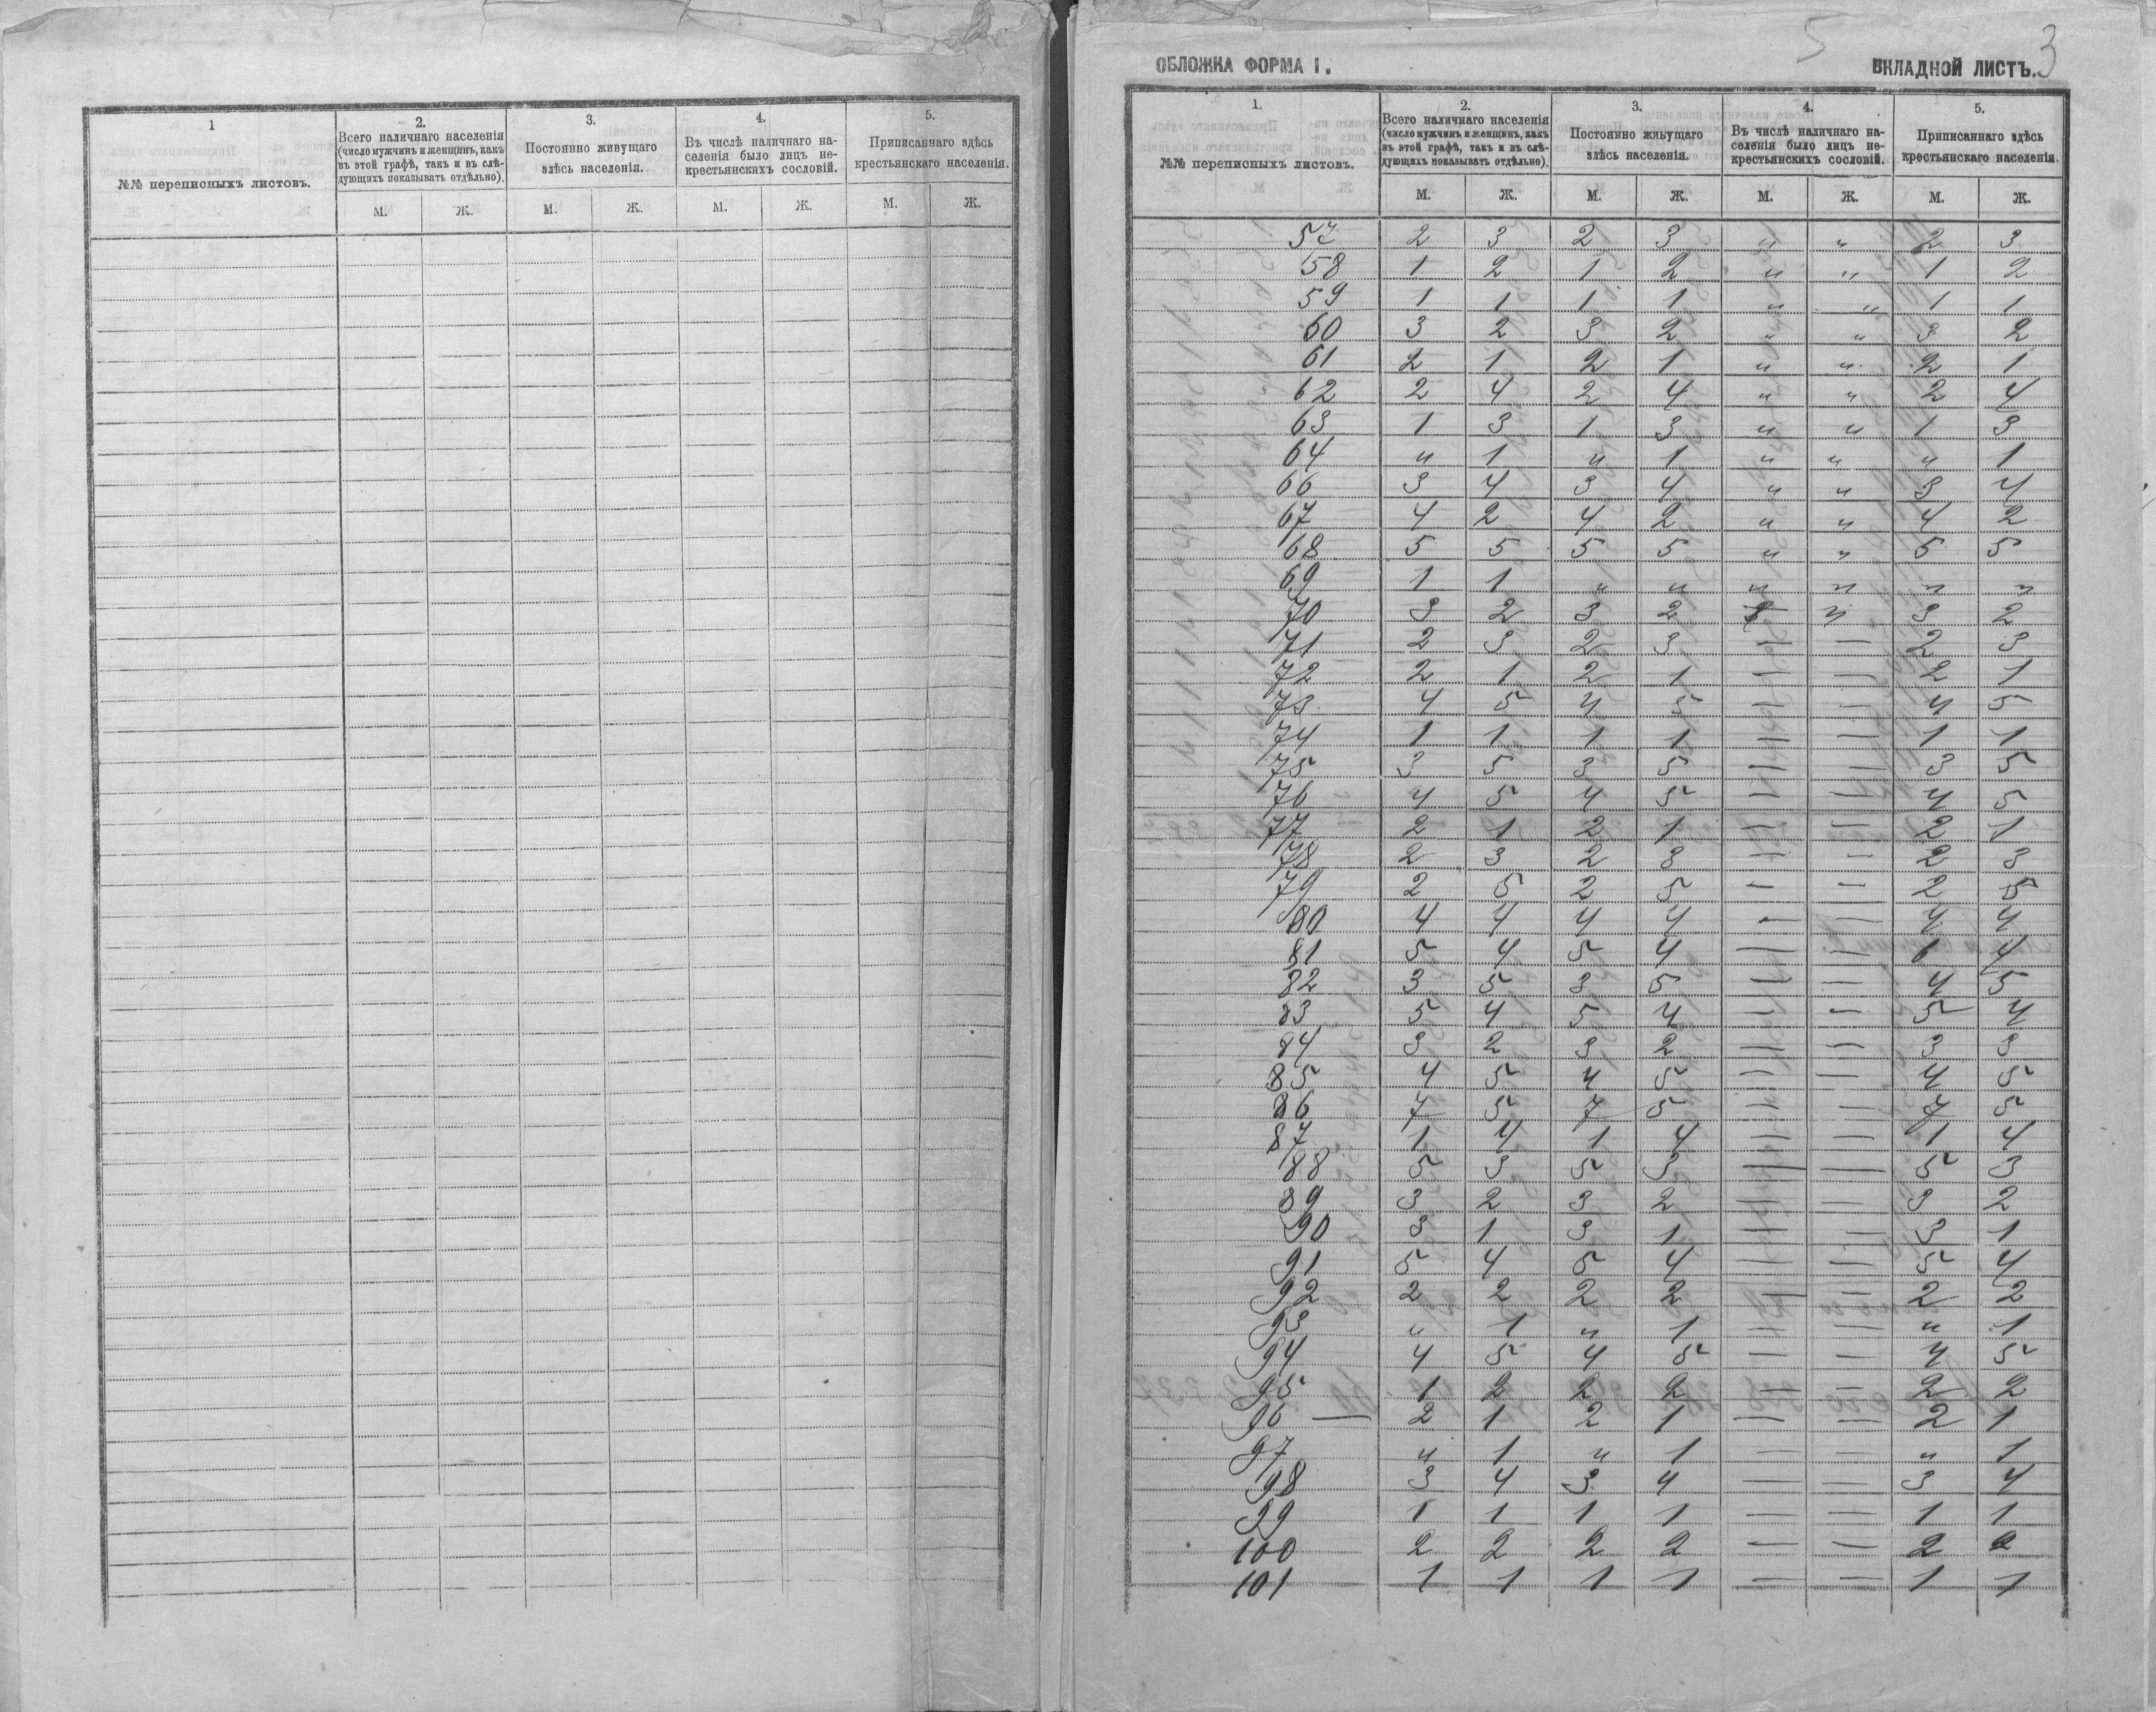 1
2.
3.
4.
5.
№№ переписныхъ листовъ.
Всего наличнаго населенія
(число мужчинъ и женщинъ, какъ
въ этой графѣ, такъ и въ слѣ-
дующихъ показывать отдѣльно).
Постоянно живущаго
здѣсь населенія.
Въ числѣ наличнаго на-
селенія было лицъ не-
крестьянскихъ сословій.
Приписаннаго здѣсь
крестьянскаго населенія.
М. Ж. М. Ж. М. Ж. М. Ж.
5 3
ОБЛОЖКА ФОРМА I. ВКЛАДНОЙ ЛИСТЪ.
1.
2.
3.
4.
5.
№№ переписныхъ листовъ.
Всего наличнаго населенія
(число мужчинъ и женщинъ, какъ
въ этой графѣ, такъ и въ слѣ-
дующихъ показывать отдѣльно).
Постоянно живущаго
здѣсь населенія.
Въ числѣ наличнаго на-
селенія было лицъ не-
крестьянскихъ сословій.
Приписаннаго здѣсь
крестьянскаго населенія.
М. Ж. М. Ж. М. Ж. М. Ж.
57 2 3 2 3 " " 2 3
58 1 2 1 2 " " 1 2
59 1 1 1 1 " " 1 1
60 3 2 3 2 " " 3 2
61 2 1 2 1 " " 2 1
62 2 4 2 4 " " 2 4
63 1 3 1 3 " " 1 3
64 " 1 " 1 " " " 1
66 3 4 3 4 " " 3 4
67 4 2 4 2 " " 4 2
68 5 5 5 5 " " 5 5
69 1 1 " " " " " "
70 3 2 3 2 " 3 2
71 2 3 2 3 — — 2 3
72 2 1 2 1 — — 2 1
73 4 5 4 5 — — 4 5
74 1 1 1 1 — — 1 1
75 3 5 3 5 — — 3 5
76 4 5 4 5 — — 4 5
77 2 1 2 1 — — 2 1
78 2 3 2 3 — — 2 3
79 2 5 2 5 — — 2 5
80 4 4 4 4 — — 4 4
81 5 4 5 4 — — 6 4
82 3 5 3 5 — — 4 5
83 5 4 5 4 — — 5 4
84 3 2 3 2 — — 3 3
85 4 5 4 5 — — 4 5
86 7 5 7 5 — — 7 5
87 1 4 1 4 — — 1 4
88 5 3 5 3 — — 5 3
89 3 2 3 2 — — 3 2
90 3 1 3 1 — — 3 1
91 5 4 5 4 — — 5 4
92 2 2 2 2 — — 2 2
93 " 1 " 1 — — " 1
94 4 5 4 5 — — 4 5
95 1 2 2 2 — — 2 2
96 — 2 1 2 1 — — 2 1
97 " 1 " 1 — — " 1
98 3 4 3 4 — — 3 4
99 1 1 1 1 — — 1 1
100 2 2 2 2 — — 2 2
101 1 1 1 1 — — 1 1